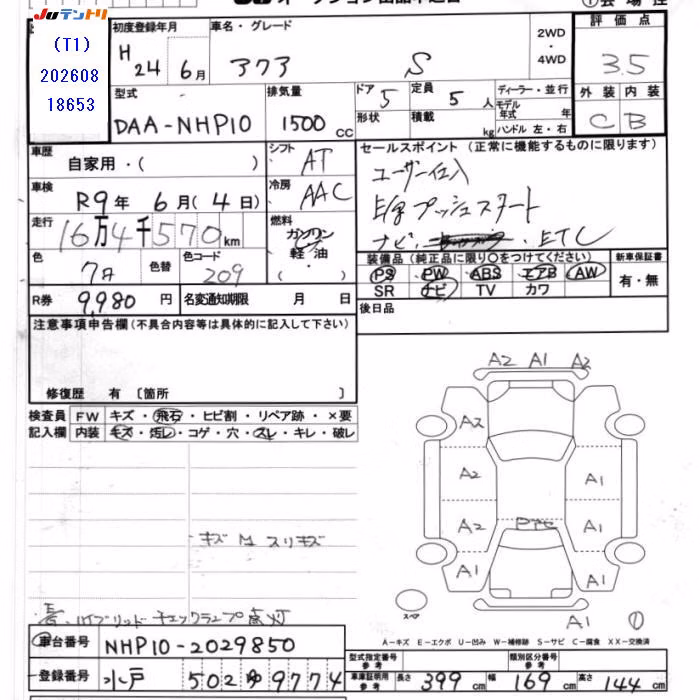 JUテントリ
オークション出品申込書
(T1)
202608
18653
初度登録年月
車名・グレード
2WD
・
4WD
評価点
H24 6月
アクア
S
3.5
型式
排気量
ドア
定員
ディーラー・並行
外装 内装
DAA-NHP10
1500 cc
5
5 人
モデル年式 年
形状
積載 kg
ハンドル 左・右
C B
車歴
自家用・( )
シフト AT
セールスポイント (正常に機能するものに限ります)
ユーザー仕入
車検
R9年 6月(4日)
冷房 AAC
プッシュスタート
走行
16万4千570km
燃料
ガソリン
軽油
・( )
ナビ.
ETC
色
色替
色コード
209
装備品(純正品に限り○をつけてください)
新車保証書
PS PW ABS エアB AW
有・無
SR ナビ TV カワ
R券 9,980 円
名変通知期限 月 日
後日品
注意事項申告欄(不具合内容等は具体的に記入して下さい)
修復歴 有 〔箇所 〕
検査員 FW キズ・飛石・ヒビ割・リペア跡・×要
記入欄 内装 キズ・汚レ・コゲ・穴・スレ・キレ・破レ
A2 A1 A2
A2
A2 A1
A2 A1
A1 A1
A1
キズ M スリキズ
ハイブリッドチェックランプ点灯
スペア
①
A-キズ E-エクボ U-凹み W-補修跡 S-サビ C-腐食 XX-交換済
車台番号 NHP10-2029850
登録番号 水戸 502 ゆ 9774
型式指定番号 参考
類別区分番号 参考
車庫証明用 参考 長さ 399 cm 幅 169 cm 高さ 144 cm